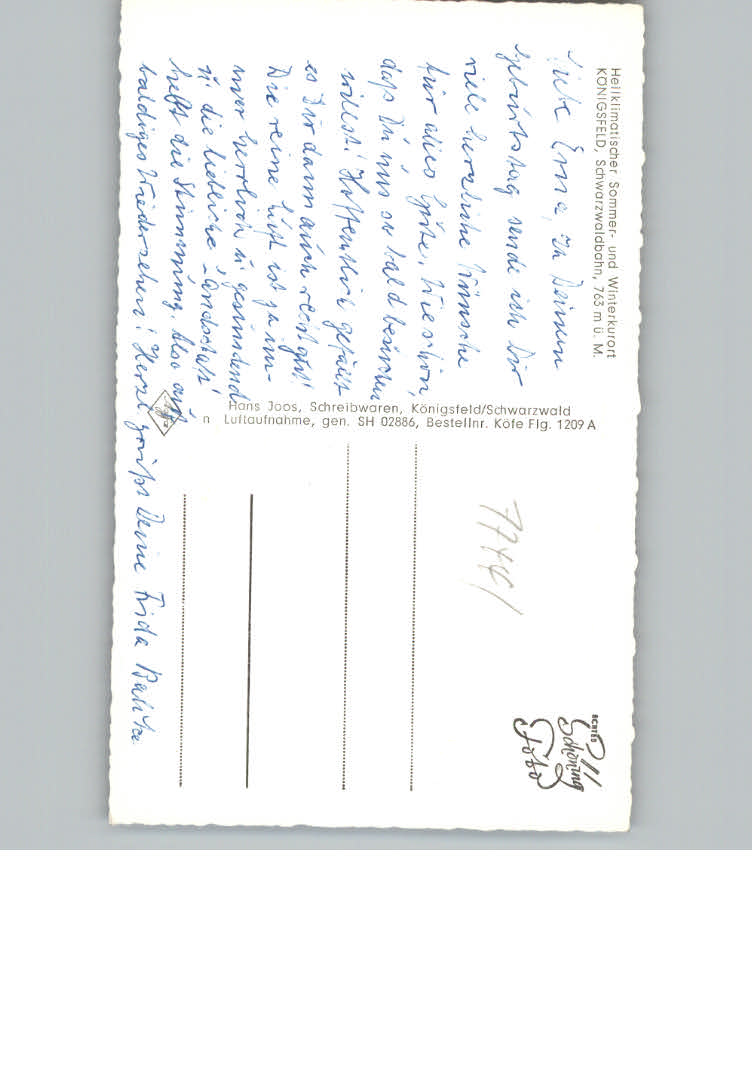 Heilklimatischer Sommer- und Winterkurort
KÖNIGSFELD, Schwarzwaldbahn, 763 m ü. M.
Liebe Erna, zu Deinem
Geburtstag sende ich Dir
viele herzliche Wünsche
für alles Gute. Wie schön,
daß Du uns so bald besuchen
willst! Hoffentlich gefällt
es Dir dann auch recht gut!
Die reine Luft ist ja im-
mer herrlich u. gesundend
u. die liebliche Landschaft
hebt die Stimmung. Also auf
baldiges Wiedersehen! Herzl. grüßt Deine Frida
Agfa
n
Hans Joos, Schreibwaren, Königsfeld/Schwarzwald
Luftaufnahme, gen. SH 02886, Bestellnr. Köfe Flg. 1209 A
ECHTES
Schöning
Foto